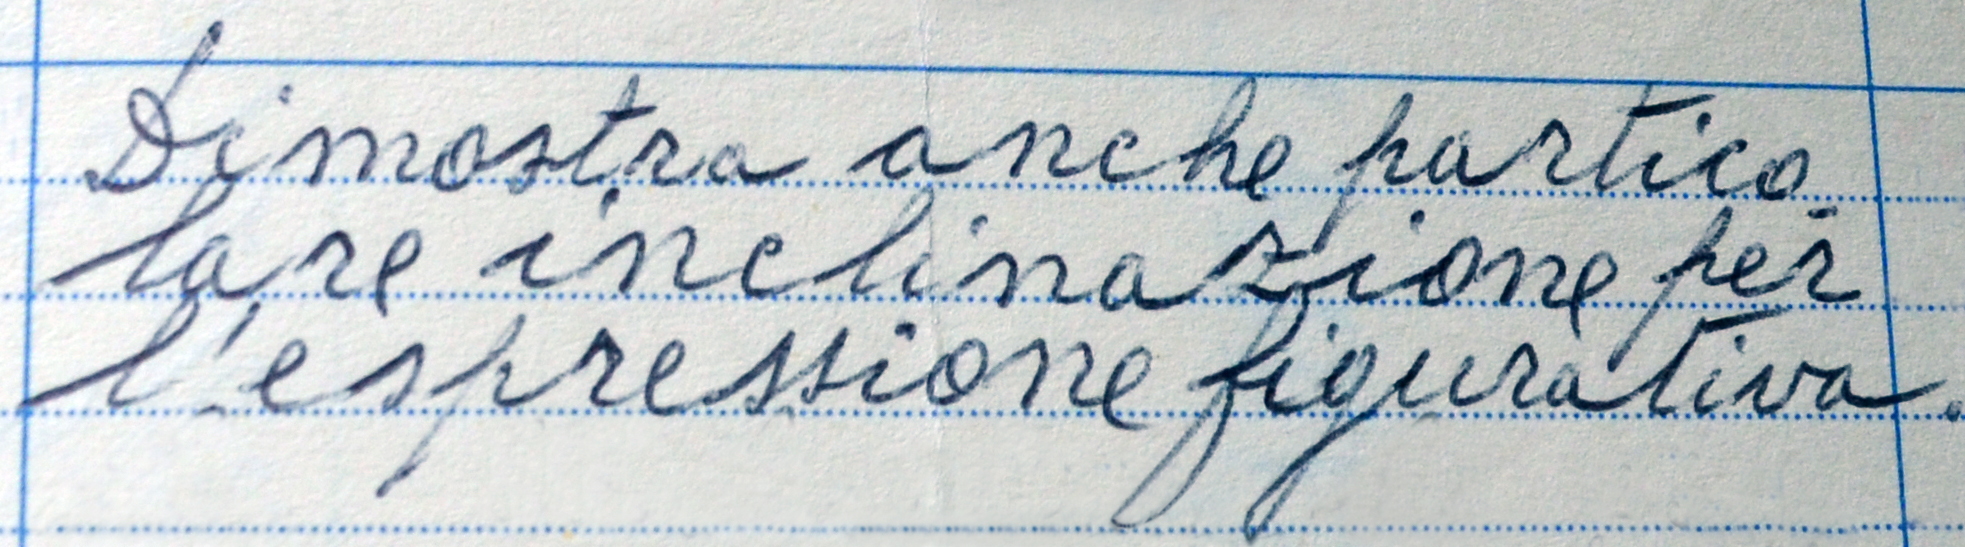 Dimostra anche partico
lare inclinazione per
l'espressione figurativa.